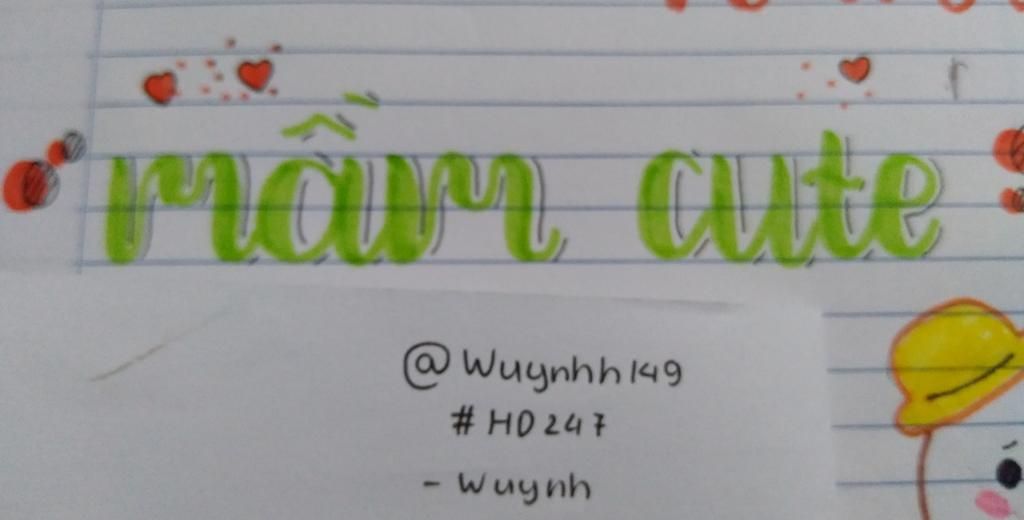 mầm cute
@Wuynhh149
#HD247
- Wuynh